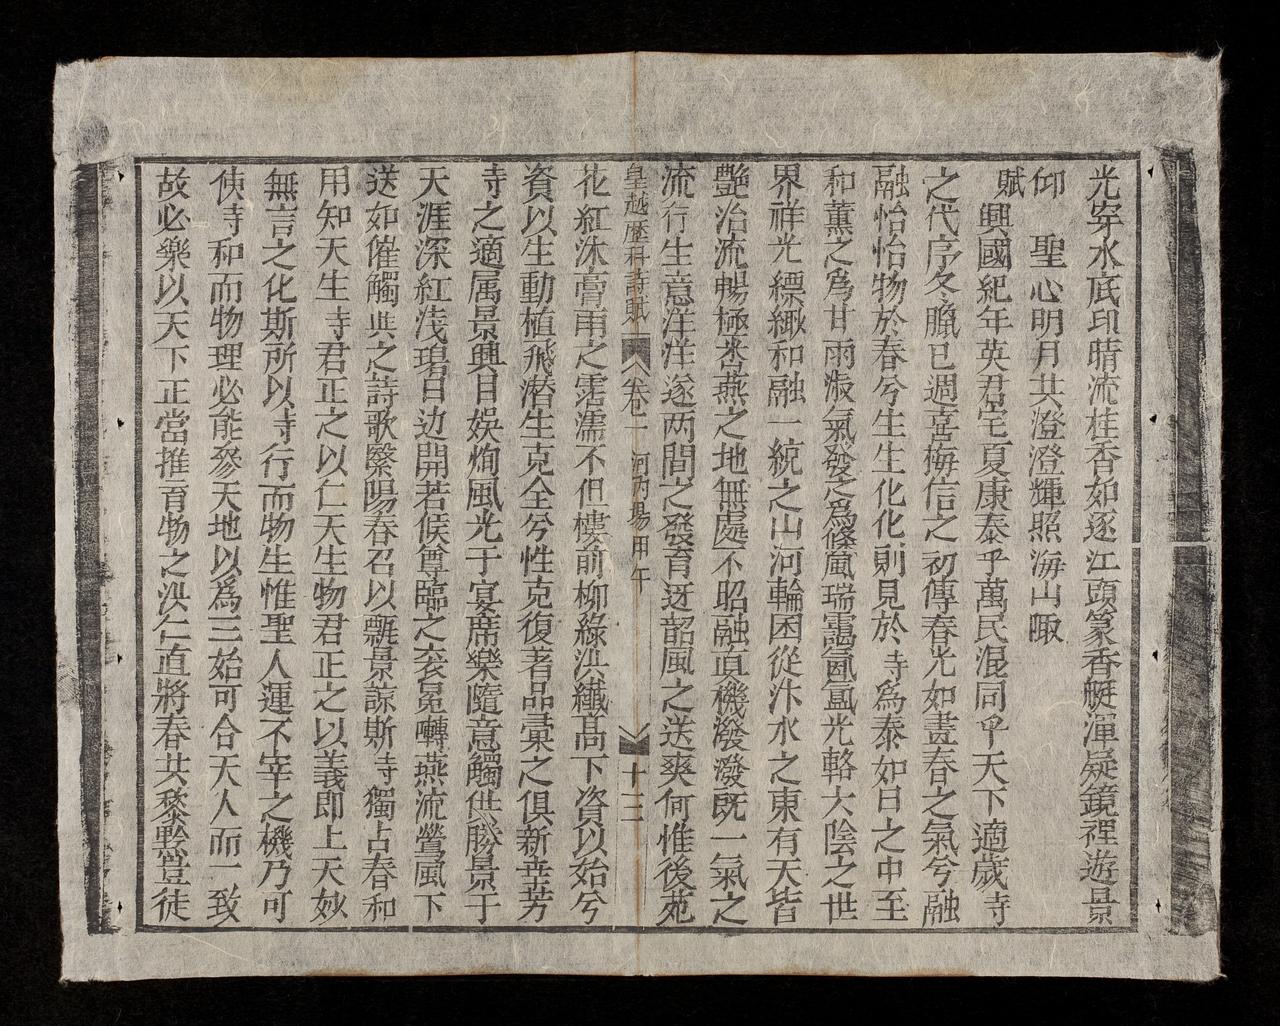 光穿水底印晴流桂香如逐江頭篆香艇渾疑鏡裡遊景
仰　聖心明月共澄澄輝照海山陬
賦　興國紀年英君宅夏康泰乎萬民混同乎天下適歲寺
之代序冬臘已週喜梅信之初傳春光如畫春之氣兮融
融怡怡物於春兮生生化化則見於寺為泰如日之中至
和薰之為甘雨淑氣發之為條風瑞靄氤氳光輅大陰之世
界祥光縹緲和融一統之山河輪囷從汴水之東有天皆
艷冶流暢極杏燕之地無處不昭融直機潑潑既一氣之
流行生意洋洋逐两間之發育迓韶風之送爽何惟後苑
皇越歷科詩賦　卷二　河內場甲午　十三
花紅沐膏雨之霑濡不但樓前柳綠洪纖髙下資以始兮
資以生動植飛潜生克全兮性克復著品彙之俱新幸芳
寺之適属景興目娯恂風光于宴席樂隨意觸供勝景于
天涯深紅浅瑥日边開若候尊臨之衮冕囀燕流鶯風下
送如催觸與之詩歌繄陽春召以麗景諒斯寺獨占春和
用知天生寺君正之以仁天生物君正之以義即上天妙
無言之化斯所以寺行而物生惟聖人運不宰之機乃可
使寺和而物理必能參天地以為三始可合天人而一致
故必樂以天下正當推育物之洪仁直將春共黎黔豈徒